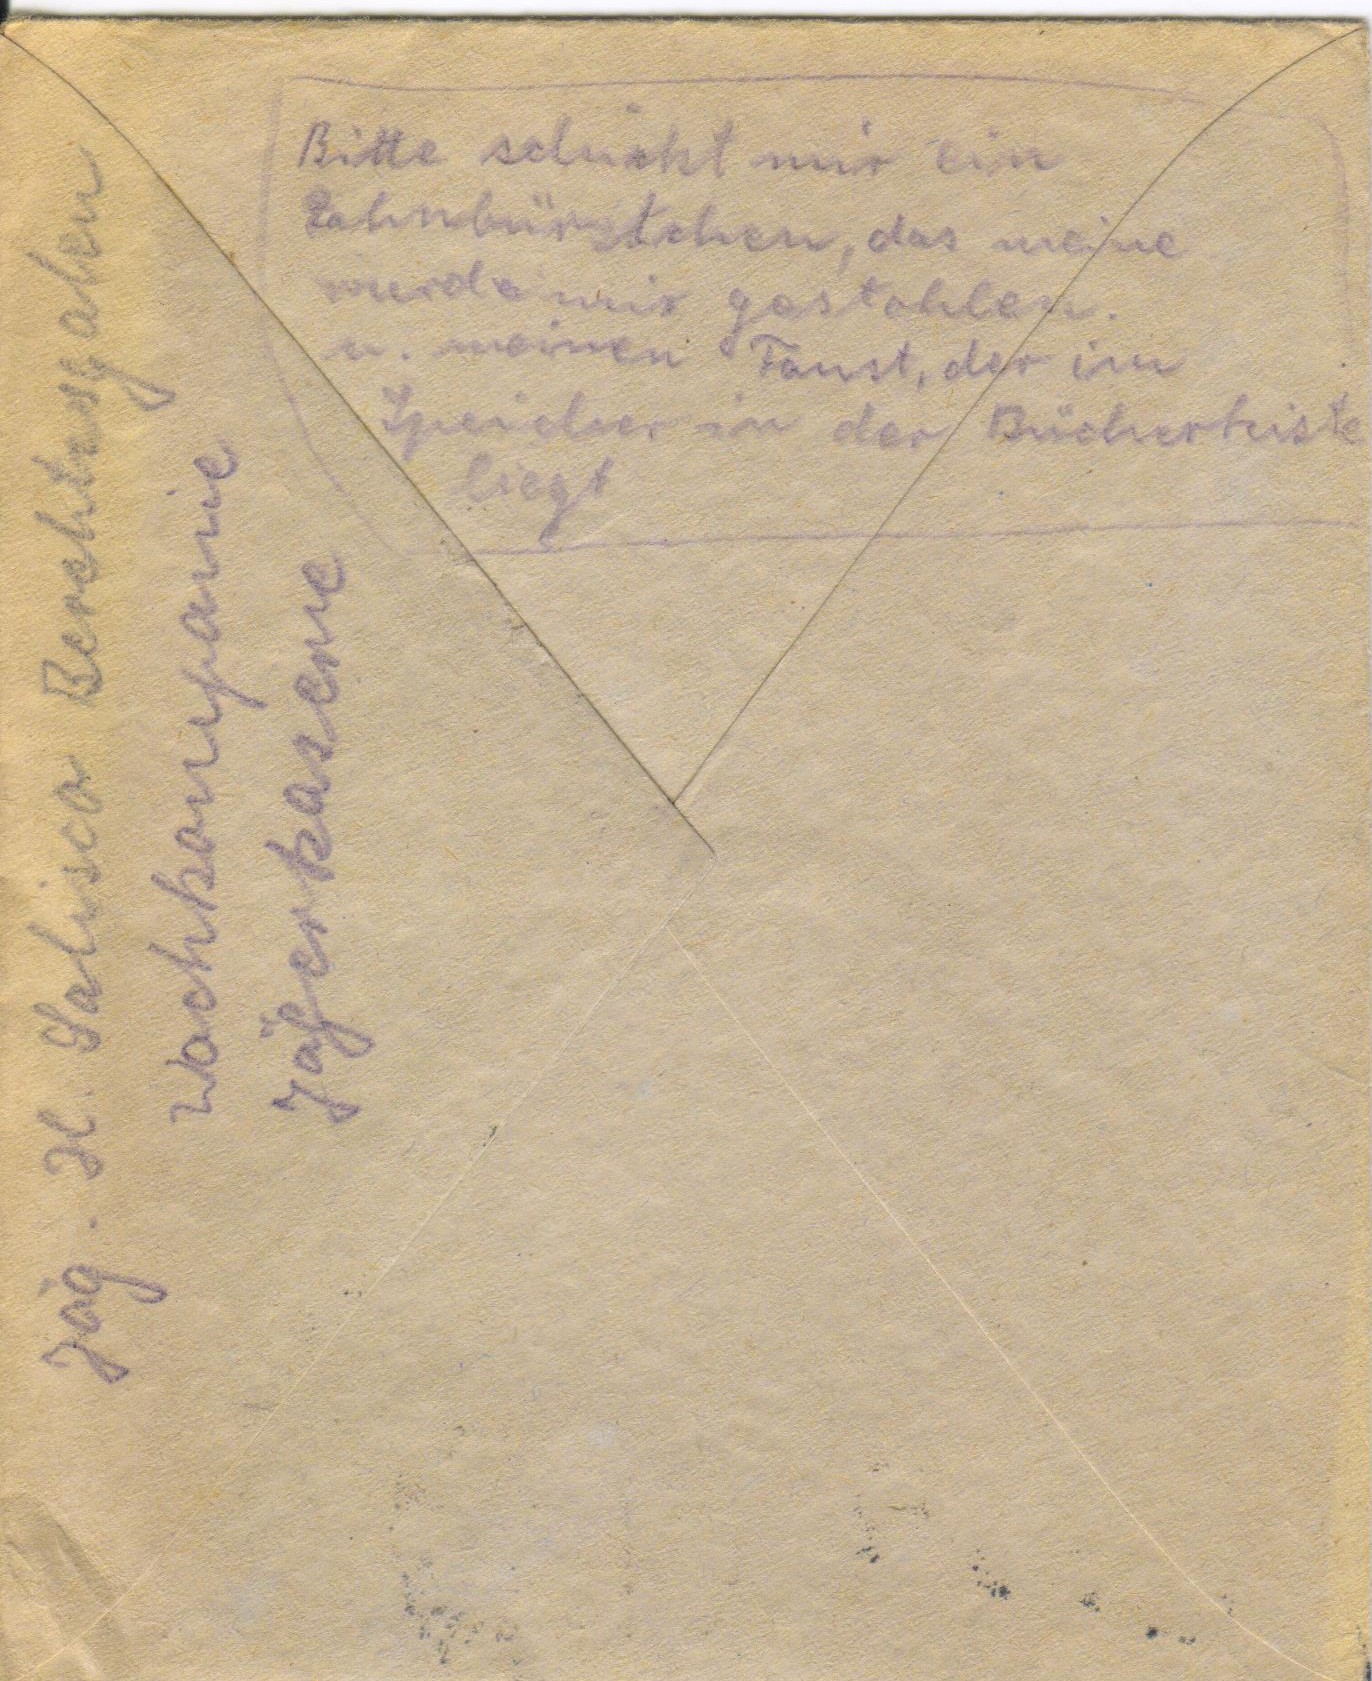 Bitte schickt mir ein
Zahnbürstchen, das meine
wurde mir gestohlen.
u. meinen Faust, der im
Speicher in der Bücherkiste
liegt
Jäg. H. Salisco Berchtesgaden
Wachkompanie
Jägerkaserne